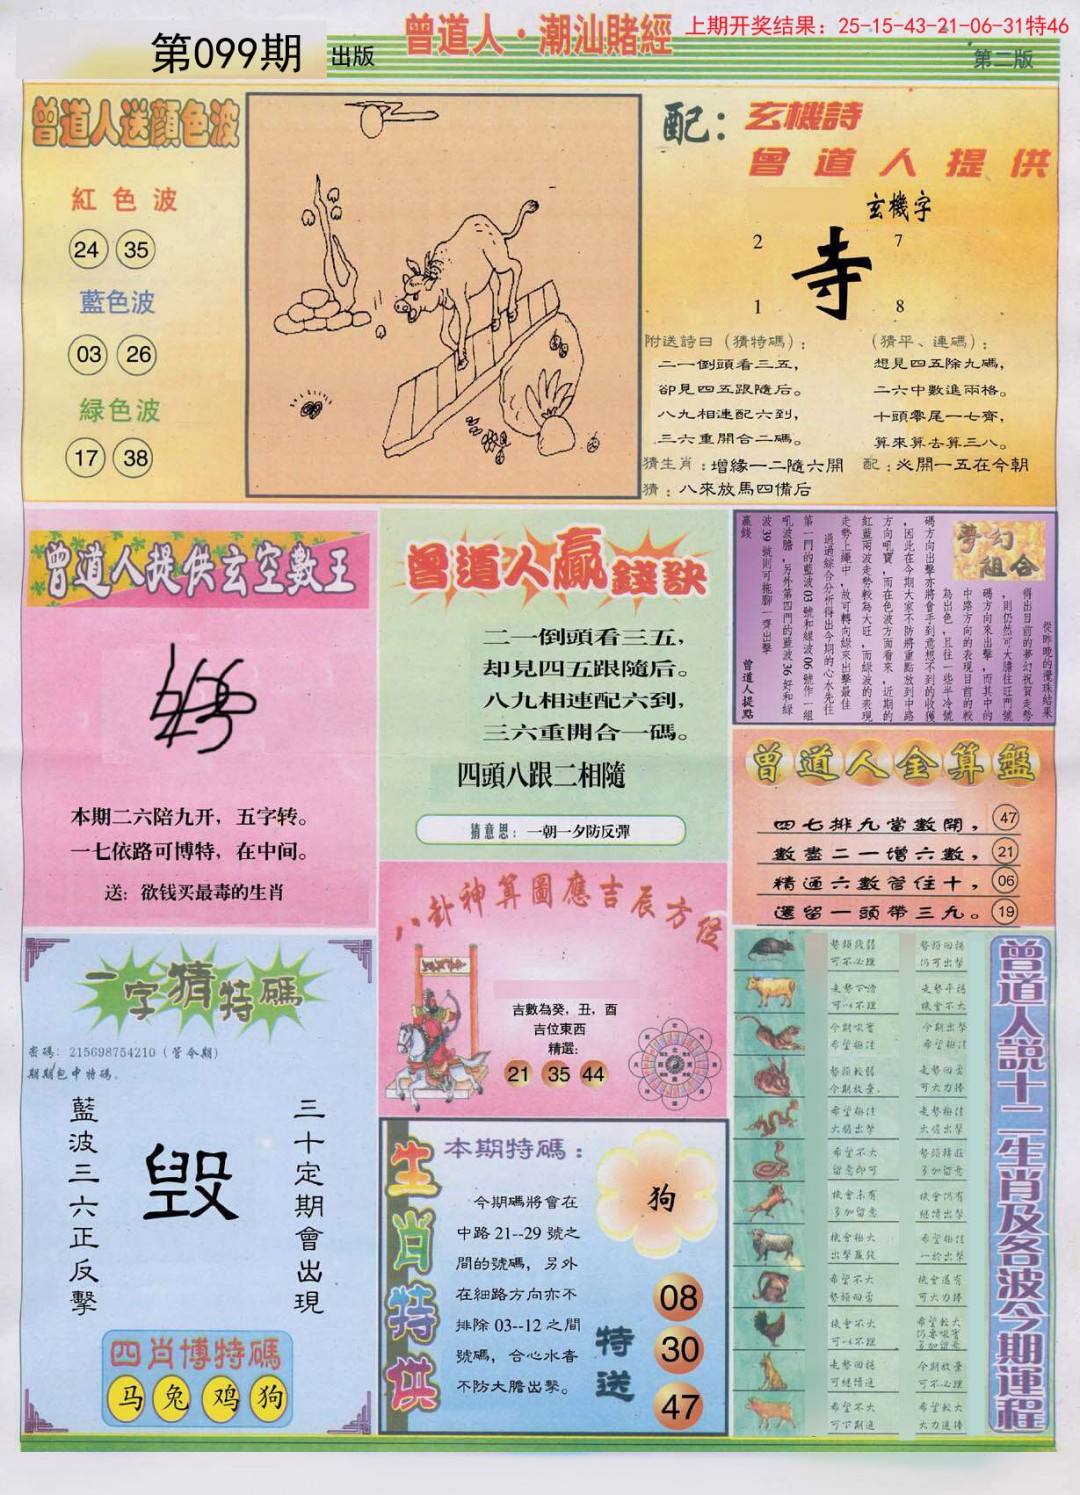 第099期
出版
曾道人·潮汕賭經
上期开奖结果：25-15-43-21-06-31特46
第二版
曾道人送顔色波
紅色波
24 35
藍色波
03 26
緑色波
17 38
配：玄機詩
曾道人提供
玄機字
2 7
寺
1 8
附送詩曰（猜特碼）：
二一倒頭看三五，
卻見四五跟隨后。
八九相連配六到，
三六重開合二碼。
（猜平、連碼）：
想見四五除九碼，
二六中數進兩格。
十頭零尾一七齊，
算來算去算三八。
猜生肖：增緣一二隨六開
配：必開一五在今朝
猜：八來放馬四備后
曾道人提供玄空數王
本期二六陪九开，五字转。
一七依路可博特，在中间。
送：欲钱买最毒的生肖
曾道人贏錢訣
二一倒頭看三五，
却見四五跟隨后。
八九相連配六到，
三六重開合一碼。
四頭八跟二相隨
猜意思：一朝一夕防反彈
夢幻組合
從昨晚的攪珠結果
得出目前的夢幻祝賀走勢
，則仍然可大膽往旺門號
碼方向來出擊，而其中的
中路方向的表現目前的較
為出色，且往一些半冷號
碼方向出擊亦將會手到意想不到的收獲
，因此在今期大家不防將重點放到中路
方向吼寶，而在色波方面看來，近期的
紅藍兩波走勢較為大旺，而綠波的表現
走勢上繩中，故可轉向綠來出擊最佳
通過綜合分析得出今期的心水先往
第一門的藍波03號和綠波06號作一組
吼波膽，另外第四門的藍波36好和綠
波39號則可拖腳一齊出擊
贏錢
曾道人提點
曾道人金算盤
四七排九當數開，47
數盡二一增六數，21
精通六數管住十，06
還留一頭帶三九。19
八卦神算圖應吉辰方位
吉數為癸，丑，酉
吉位東西
精選：
21 35 44
一字猜特碼
密碼：215698754210（管令期）
期期包中特碼。
藍波三六正反擊
毁
三十定期會出現
四肖博特碼
马 兔 鸡 狗
生肖特供
本期特碼：
今期碼將會在
中路21--29號之
間的號碼，另外
在細路方向亦不
排除03--12之間
號碼，合心水者
不防大膽出擊。
狗
特送
08
30
47
曾道人說十二生肖及各波今期運程
可不必理
仍可出擊
可一不理
機會不大
今期出擊
今期放棄。
可大力捧
大膽出擊
大膽出擊
希望不大
留意即可
多加留意
機會未有
多加留意
機會仍有
繼續出擊
機會極大
出擊贏錢
一於出擊
希望不大
機會還有
可大力捧
機會不大
可一不理
希望較大
仍要吼實
多加留意
可繼續追
今期放棄
可不必理
希望不大
可下期追
希望較大
大力追捧